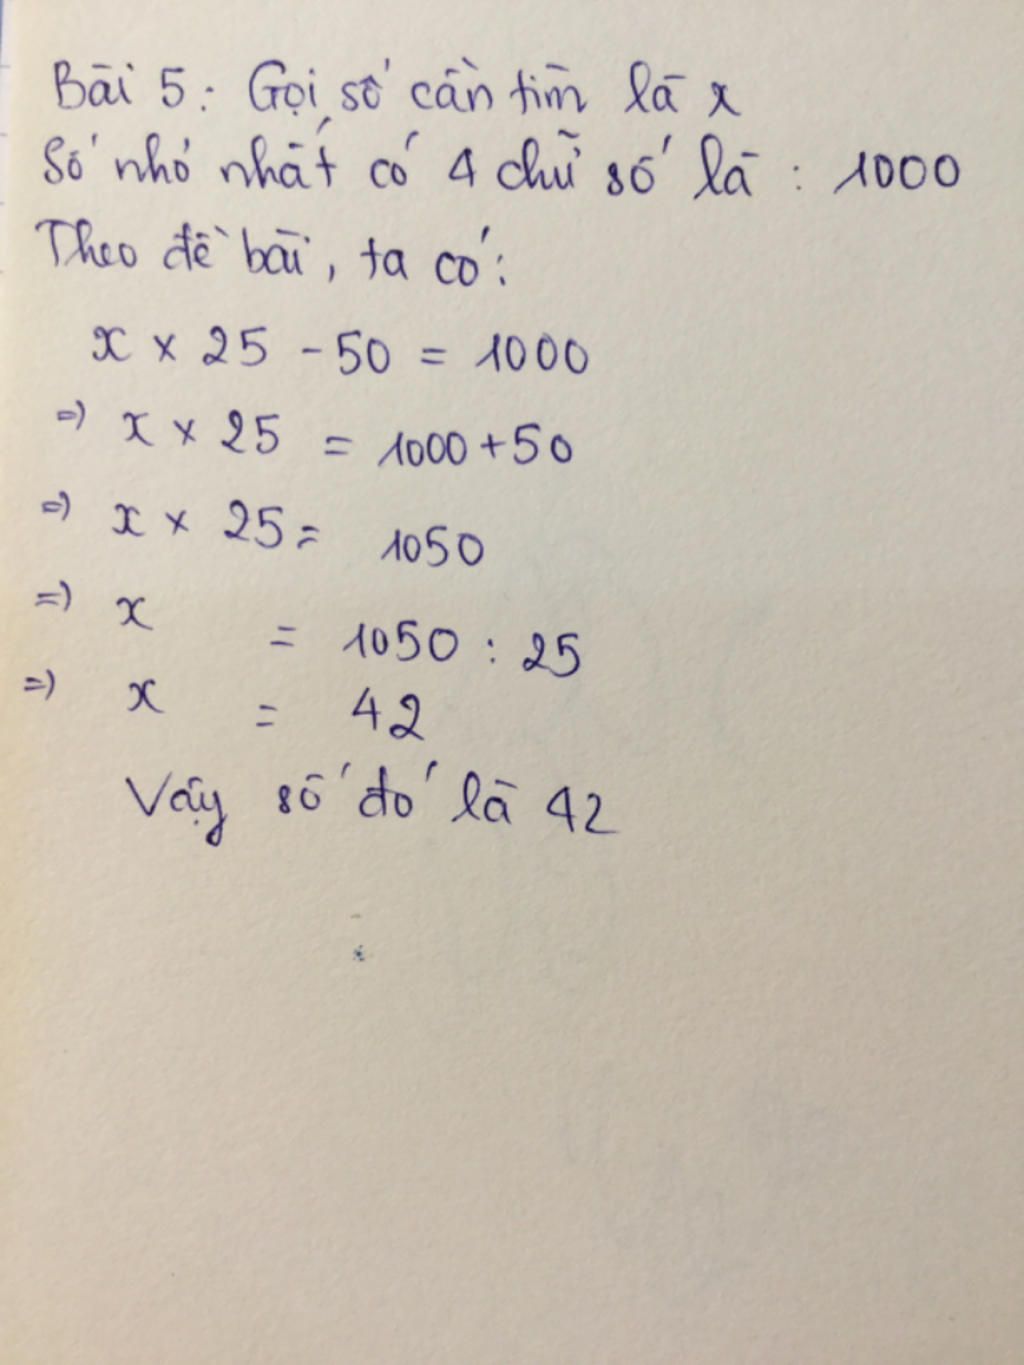 Bài 5: Gọi số cần tìm là x
Số nhỏ nhất có 4 chữ số là : 1000
Theo đề bài, ta có:
x × 25 - 50 = 1000
=> x × 25 = 1000 + 50
=> x × 25 = 1050
=> x = 1050 : 25
=> x = 42
Vậy số đó là 42